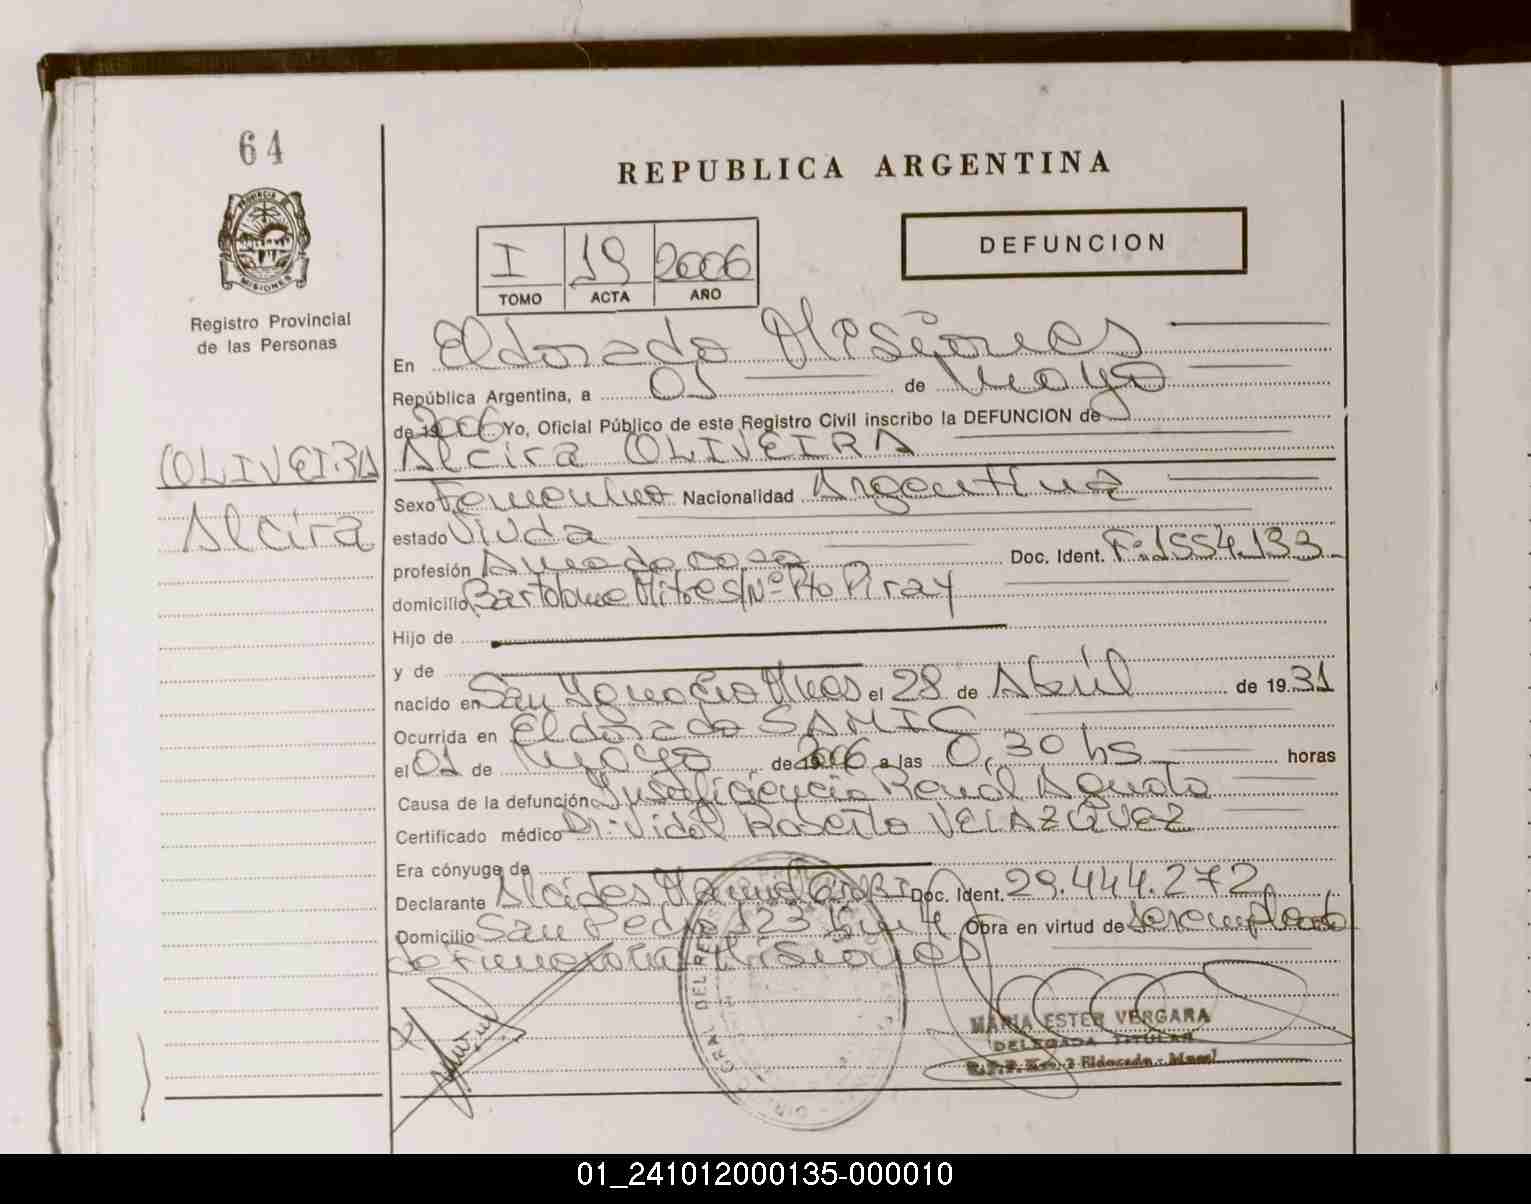 64
REPUBLICA ARGENTINA
DEFUNCION
I 19 2006
TOMO ACTA AÑO
Registro Provincial
de las Personas
En Eldorado Misiones
República Argentina, a 01 de Mayo
de 2006 Yo, Oficial Público de este Registro Civil inscribo la DEFUNCION de
OLIVEIRA
Alcira OLIVEIRA
Sexo Femenino Nacionalidad Argentina
Alcira
estado Viuda
profesión Ama de casa Doc. Ident. F:1554.133
domicilio Bartolome Mitre s/Nº Pto Piray
Hijo de
y de
nacido en San Ignacio Mnes el 28 de Abril de 1931
Ocurrida en Eldorado SAMIC
el 01 de Mayo de 2006 a las 0,30 hs horas
Causa de la defunción Insuficiencia Renal Aguda
Certificado médico Dr. Vidal Roberto VELAZQUEZ
Era cónyuge de
Declarante Alcides Doc. Ident. 29.444.272
Domicilio San Pedro 123 Km 4 Obra en virtud de ser empleado
de Funeraria Misiones
MARIA ESTER VERGARA
DELEGADA TITULAR
01_241012000135-000010